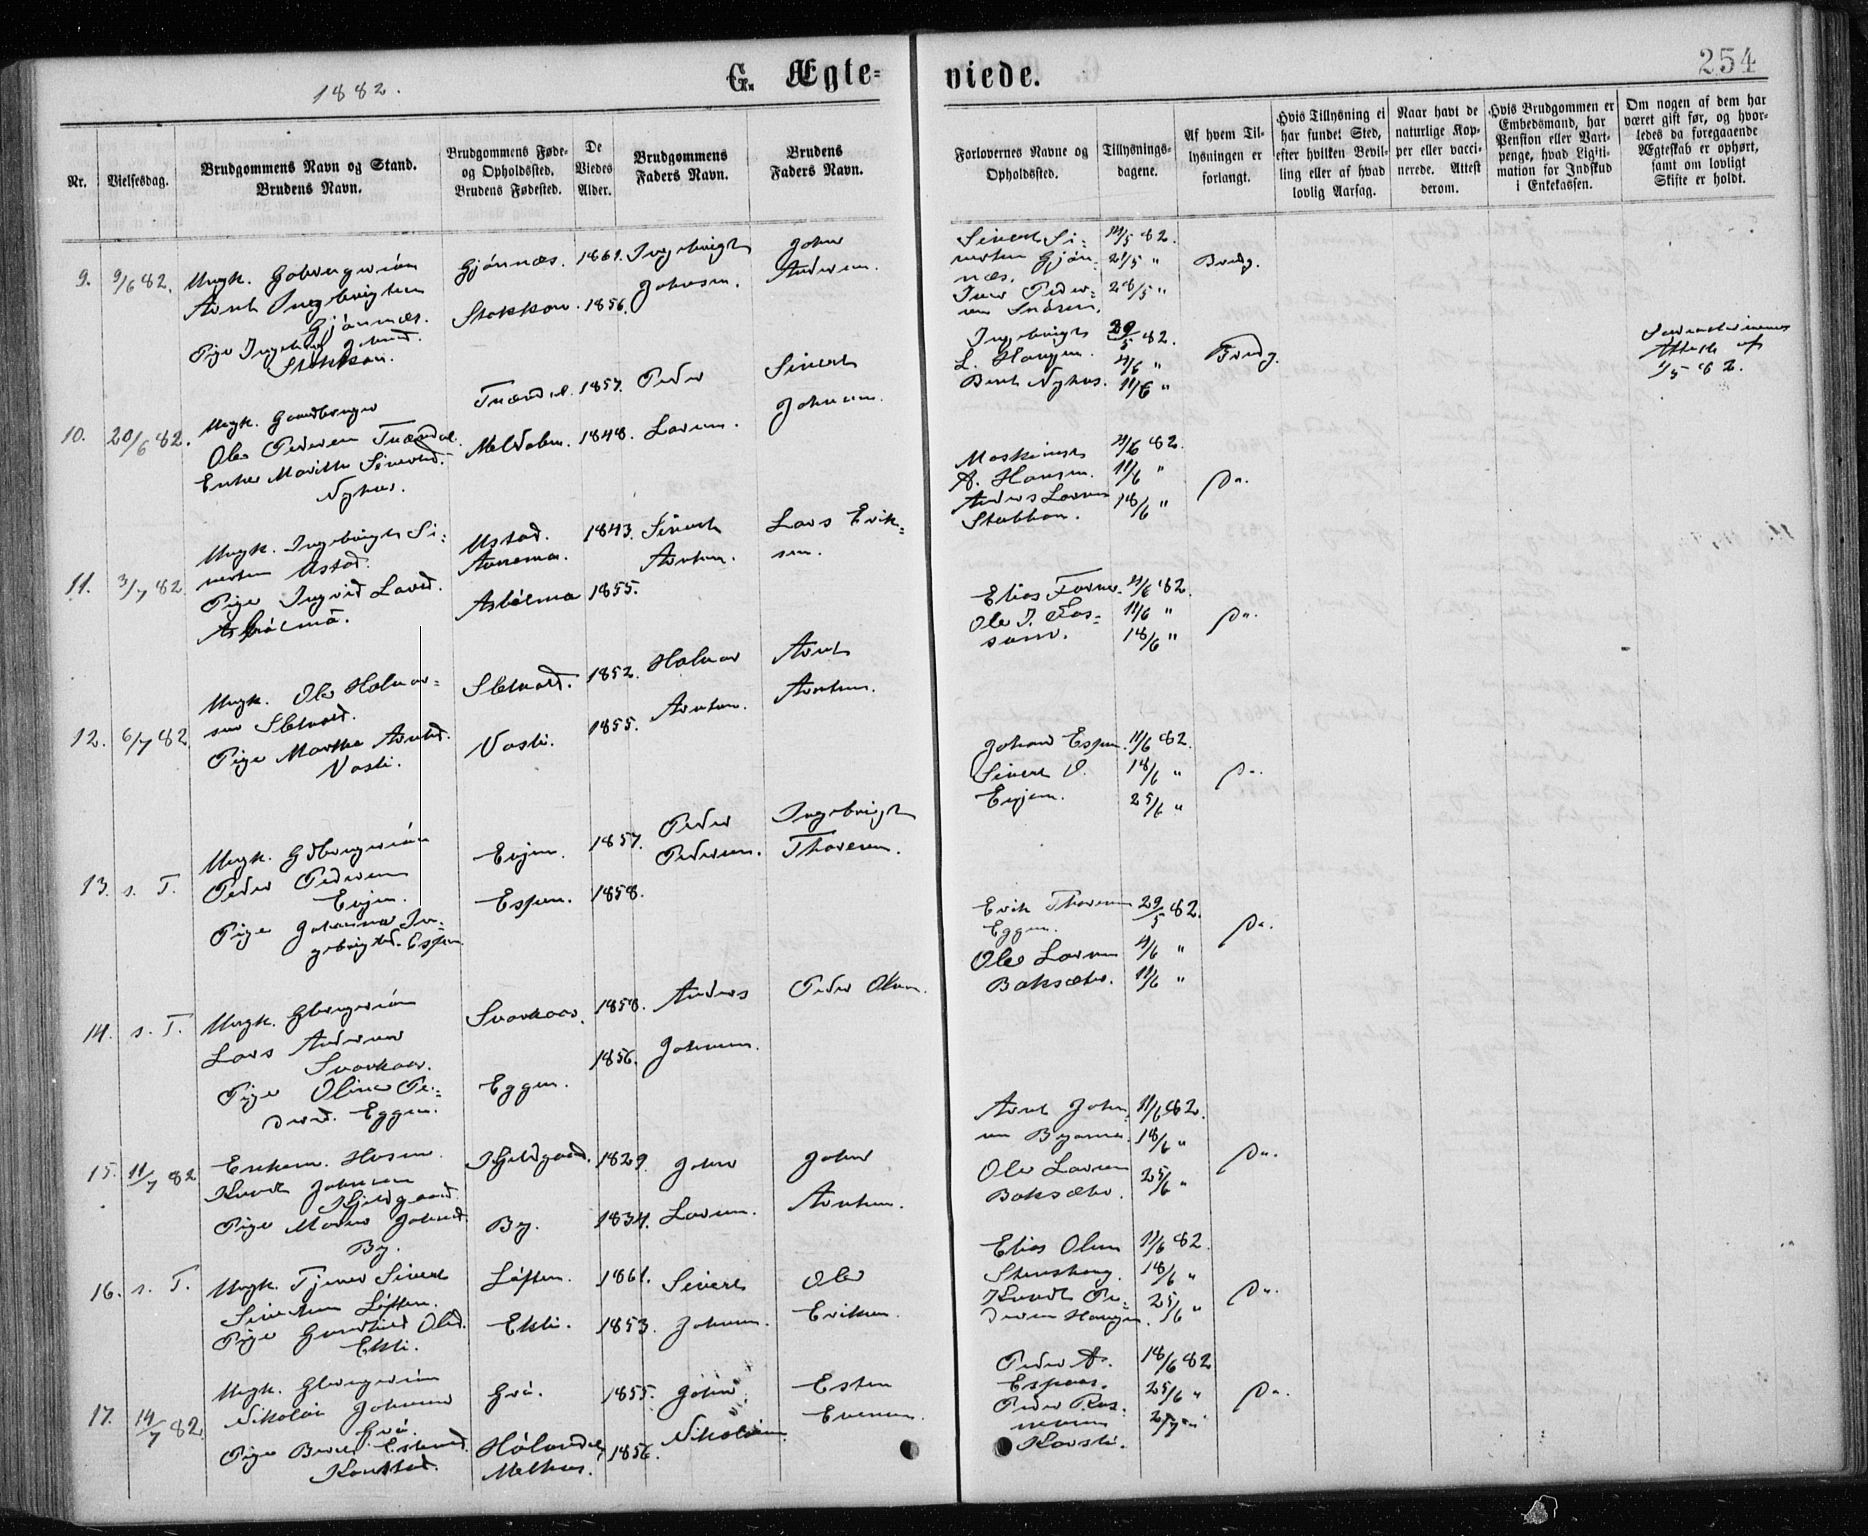 1882.
G. Ægte-
viede.
254
Nr.
Vielsesdag.
Brudgommens Navn og Stand.
Brudens Navn.
Brudgommens Føde-
og Opholdssted.
Brudens Fødested.
De
Viedes
Alder.
Brudgommens
Faders Navn.
Brudens
Faders Navn.
Forlovernes Navne og
Opholdssted.
Tillysnings-
dagene.
Af hvem Til-
lysningen er
forlangt.
Hvis Tillysning ei
har fundet Sted,
efter hvilken Bevil-
ling eller af hvad
lovlig Aarsag.
Naar havt de
naturlige Kop-
per eller vacci-
nerede. Attest
derom.
Hvis Brudgommen er
Embedsmand, har
Pension eller Vart-
penge, hvad Ligiti-
mation for Indskud
i Enkekassen.
Om nogen af dem har
været gift før, og hvor-
ledes da foregaaende
Ægteskab er ophørt,
samt om lovligt
Skifte er holdt.
9. 9/6 82.
Ungk.
Arnt Ingebrigtsen
Gjönnæs.
Pige Johnsd.
Stokkan.
Gjönnæs. 1861. Ingebrigt John
Stokkan. 1856. Johnsen. Andersen.
Sivert Si-
vertsen Gjön-
næs.
Iver Peder-
sen
14/5 82.
21/5 "
28/5 "
Brudg.
10. 20/6 82.
Ungk. Gaardbruger
Ole Pedersen Trændal.
Enke Marith Sivertsd.
Nyhus.
Trændal. 1857. Peder Sivert
Meldalen. 1848. Larsen. Johnsen.
Ingebrigt
L. Haugen.
Bernt Nyhus.
29/5 82.
4/6 "
11/6 "
Brudg.
Attest af
1/5 82.
11. 3/7 82
Ungk. Ingebrigt Si-
vertsen Ustad.
Pige Ingrid Larsd.
Asbölmo.
Ustad. 1843. Sivert Lars Erik-
Arntsen. sen.
Asbölmo 1855.
Maskinist
A. Hansen.
Anders Larsen
Stubban.
4/6 82.
11/6 "
18/6 "
Do.
12. 6/7 82
Ungk. Ole Halvor-
sen Sletvold.
Pige Marthe Arntsd.
Vasli.
Sletvold. 1852. Halvor Arnt
Vasli. 1855. Arntsen. Arntsen.
Elias Forve.
Ole J. Fos-
4/6 82.
11/6 "
18/6 "
Do.
13. s. T.
Ungk.
Peder Pedersen
Evjen.
Pige Johanna In-
gebrigtsd. Espen
Evjen. 1857. Peder Ingebrigt
Pedersen. Thoresen.
Espen. 1858.
Johan Espen.
Sivert O.
Evjen.
11/6 82.
18/6 "
25/6 "
Do.
14. s. T.
Ungk.
Lars Andersen
Svorkaas.
Pige Oline Pe-
dersd. Eggen.
Svorkaas. 1858. Anders Peder Olsen.
1856. Johnsen.
Eggen.
Erik Thoresen
Eggen.
Ole Larsen
Baksætr.
29/5 82.
4/6 "
11/6 "
Do.
15. 11/7 82
Enkem.
Knudt Johnsen
Kjeldgaard.
Pige Maren Johnsd.
By.
Kjeldgaard. 1829. John John
By. 1834. Larsen. Arntsen.
Arnt John-
sen
Ole Larsen
Baksætr.
11/6 82.
18/6 "
25/6 "
Do.
16. s. T.
Ungk. Tjener Sivert
Sivertsen Löften.
Pige Gunhild Olsd.
Ekli.
Löften. 1861. Sivert Ole
Ekli. 1853. Johnsen. Eriksen.
Elias Olsen
Stenshoug.
Knudt Pe-
dersen Haugen.
11/6 82.
18/6 "
25/6 "
Do.
17. 14/7 82.
Ungk.
Nikolai Johnsen
Grö.
Pige Berit Estensd.
Konstad.
Grö. 1855. John Esten
Hölandet 1856. Nikolaisen. Evensen.
Melhus.
Peder A.
Espaas.
Peder Ras-
mussen
Korsli.
18/6 82
25/6 "
2/7 "
Do.